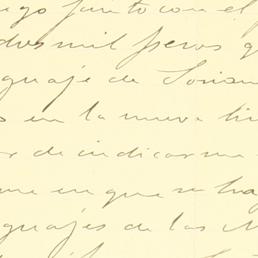 ego junto con el p
dos mil pesos q
guaje de Sorian
s en la nueva lin
r de indicarme
me en que se hay
guajes de las M